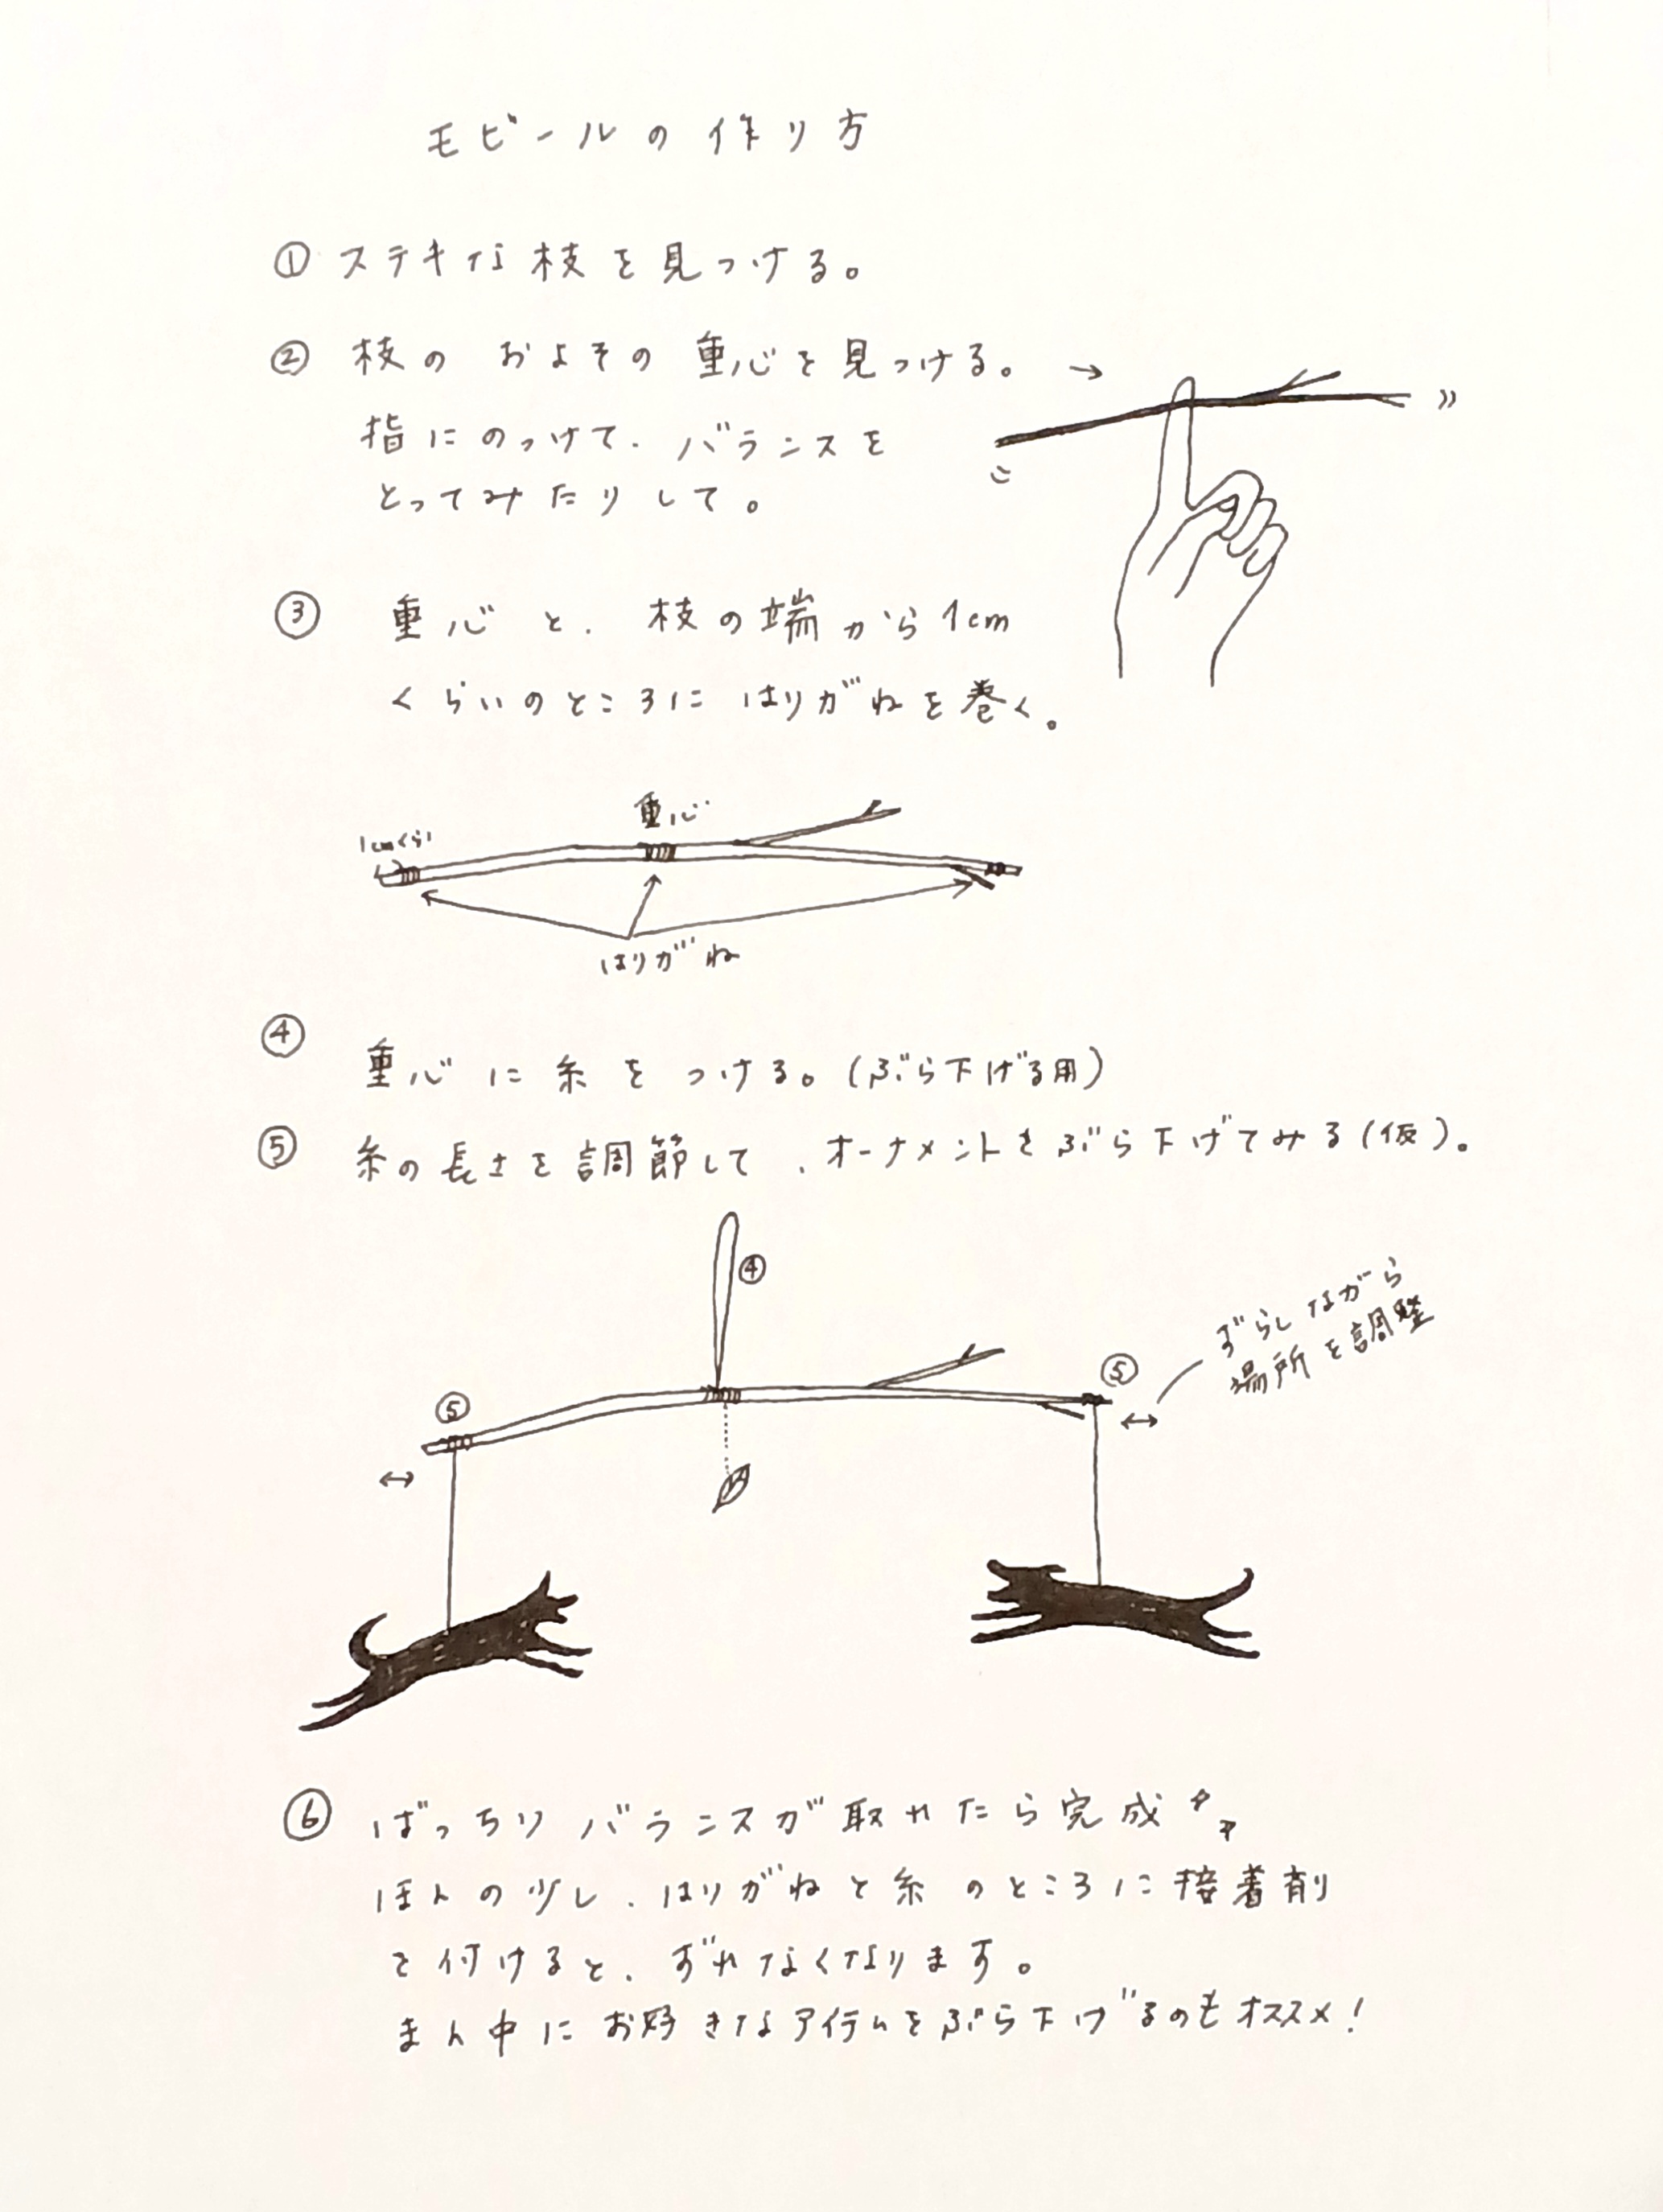 モビールの作り方
① ステキな枝を見つける。
② 枝のおよその重心を見つける。→
指にのっけて、バランスを
とってみたりして。
③ 重心と、枝の端から1cm
くらいのところにはりがねを巻く。
重心
1cmくらい
はりがね
④ 重心に糸をつける。(ぶら下げる用)
⑤ 糸の長さを調節して、オーナメントをぶら下げてみる(仮)。
④
ずらしながら
場所を調整
⑤
⑤
⑥ ばっちりバランスが取れたら完成
ほんの少し、はりがねと糸のところに接着剤
を付けると、ずれなくなります。
まん中にお好きなアイテムをぶら下げるのもオススメ!